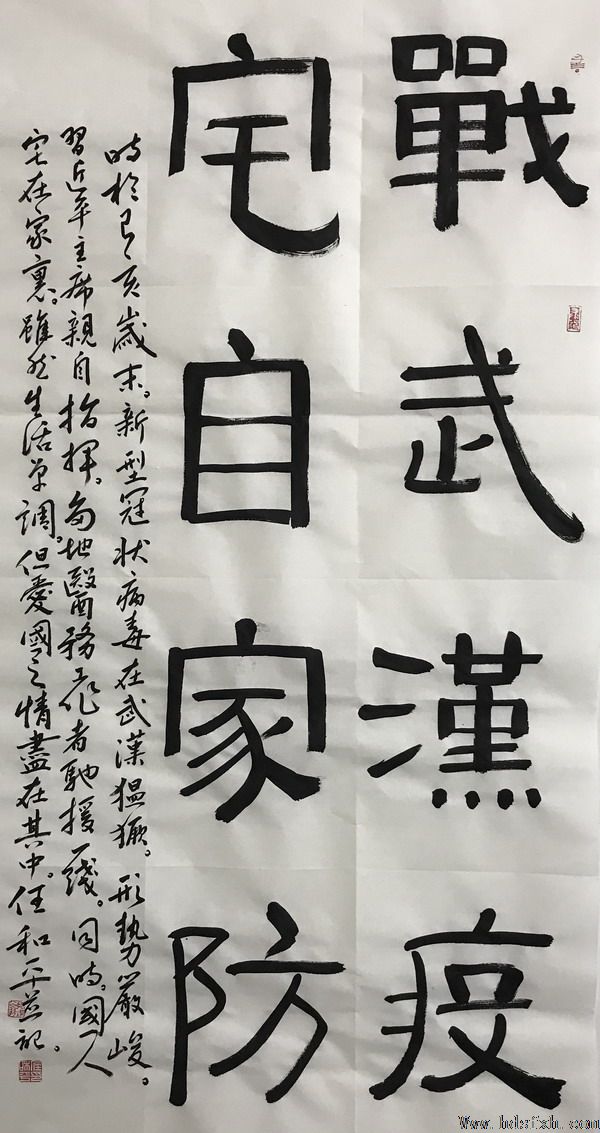 戰武漢疫
宅自家防
時於己亥歲末。新型冠狀病毒在武漢猖獗。形勢嚴峻。
習近平主席親自指揮。各地醫務工作者馳援一线。同時。國人
宅在家裏。雖然生活单調。但愛國之情盡在其中。任和平并記。